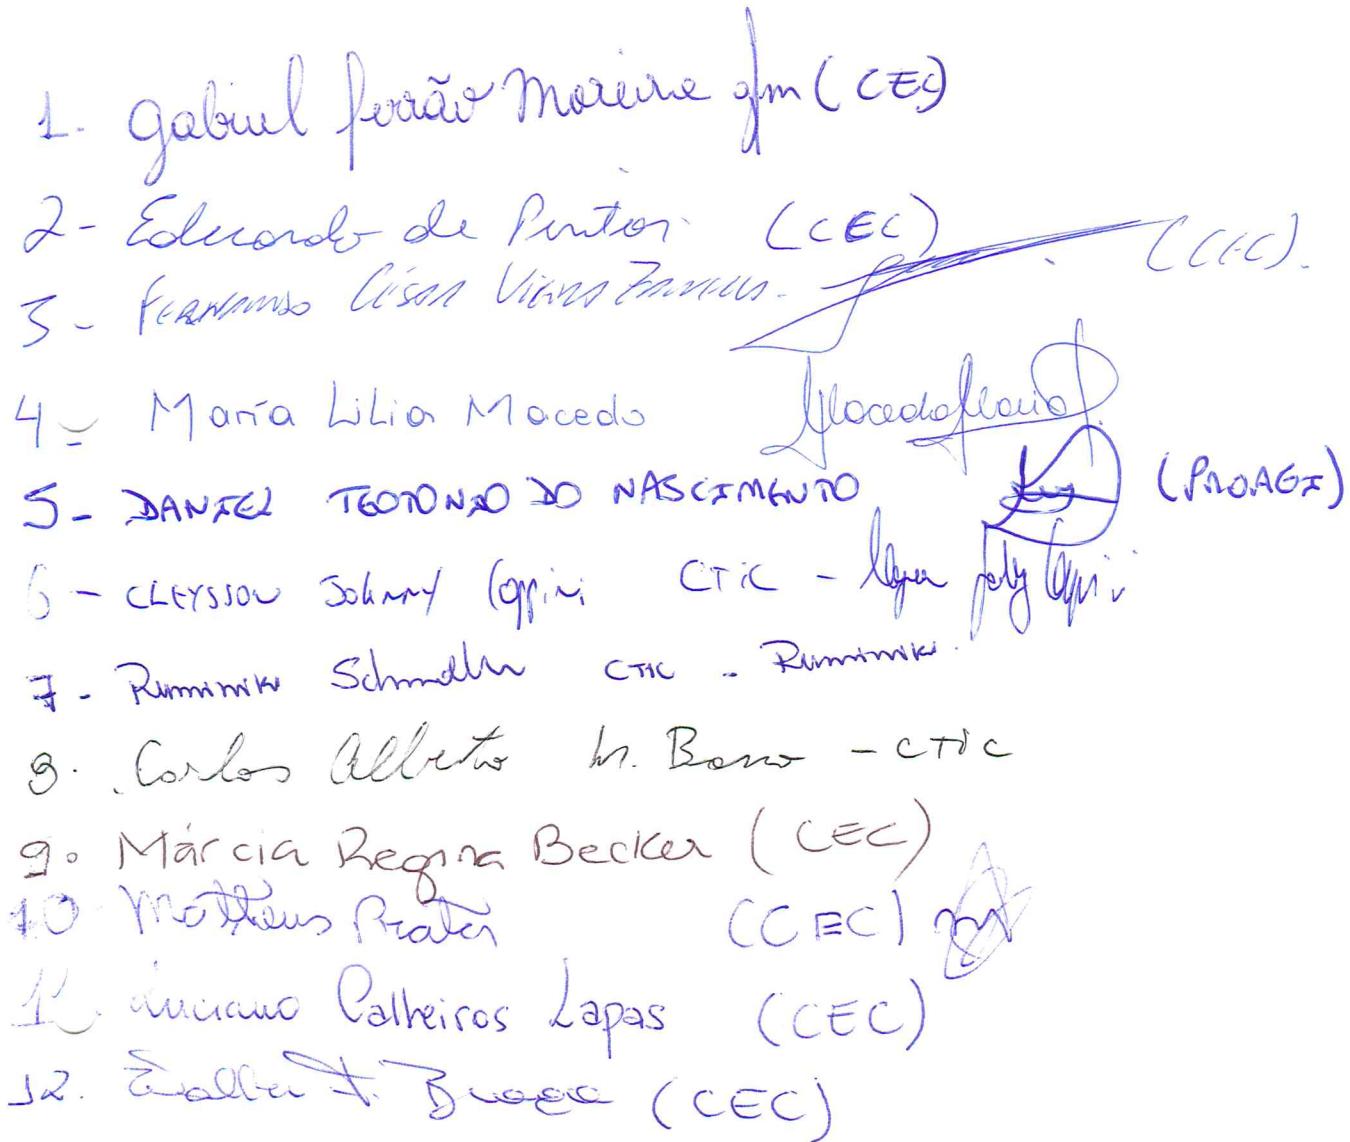 1. Gabriel Ferrão Moreira gfm (CEC)
2- Eduardo de Pintor (CEC)
3- Fernando César Vieira (CEC).
4- María Lilia Macedo
5- DANIEL TEOTONIO DO NASCIMENTO (PROAGI)
6- CLEYSSON JOHNNY Coppini CTIC -
7- Ruminiki Schmoeller CTIC - Ruminiki
8. Carlos Alberto M. Basso - CTIC
9. Márcia Regina Becker (CEC)
10 Matheus Prates (CEC)
11. Luciano Calheiros Lapas (CEC)
12. Braga (CEC)